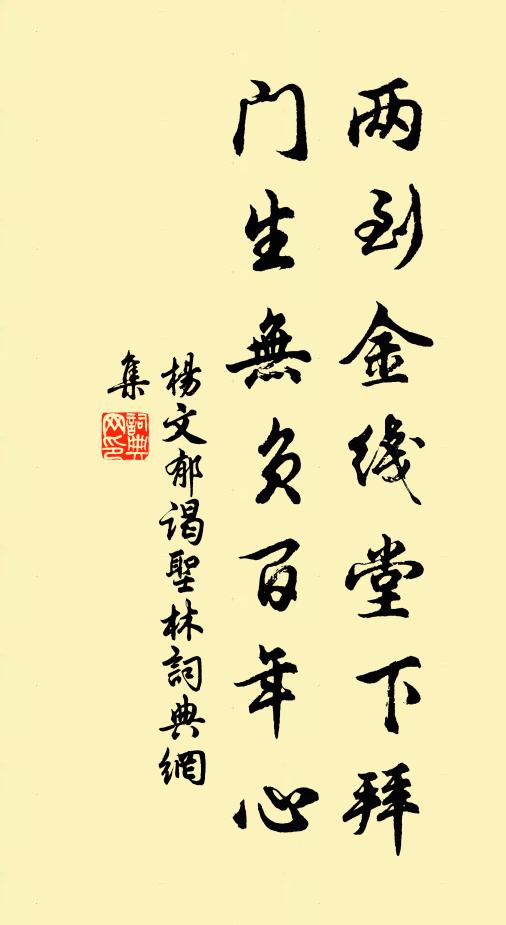 两到金线堂下拜
门生無负百年心
杨文郁谒聖林詞典網
集
詞典网印